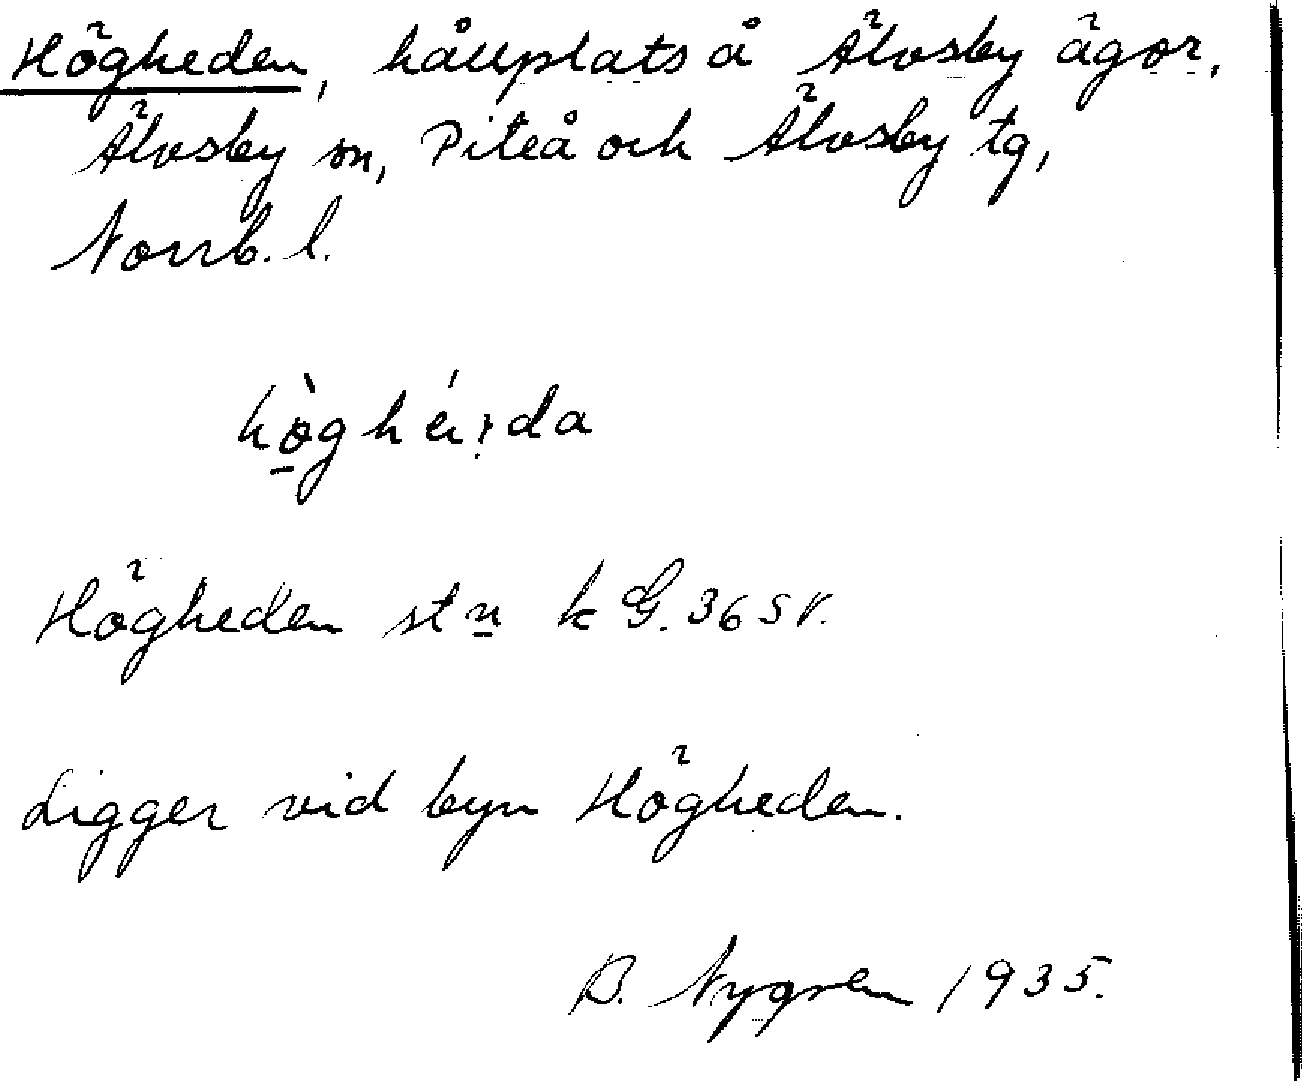 Högheden, hållplats å Älvsby ägor,
Älvsby sn, Piteå och Älvsby tg,
Norrb. l.
hö̀ghéi:da
Högheden stn k G. 36 SV.
Ligger vid byn Högheden.
B. Nygren 1935.